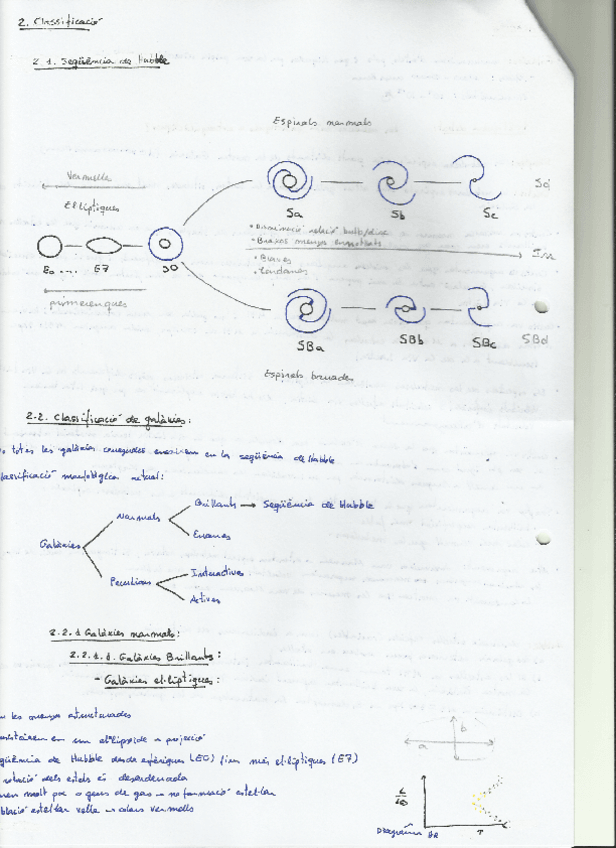 2. Classificació
2.1. Seqüència de Hubble
Espirals normals
Vermelles
El·líptiques
Sa
Sb
Sc
Sd
• Disminució relació bulb/disc
• Braços menys enrotllats
• Blaves
• Tardanes
Irr
E0 .... E7 S0
primerenques
SBa
SBb
SBc
SBd
Espirals barrades
2.2. Classificació de galàxies:
totes les galàxies conegudes encaixen en la seqüència de Hubble
classificació morfològica actual:
Galàxies
Normals
Brillants → Seqüència de Hubble
Enanes
Peculiars
Interactives
Actives
2.2.1 Galàxies normals:
2.2.1.1. Galàxies Brillants:
- Galàxies el·líptiques:
les menys estructurades
en un el·lipsoide a projecció
seqüència de Hubble desde esfèriques (E0) fins més el·líptiques (E7)
rotació dels estels és desordenada
molt poc o gens de gas → no formació estel·lar
població estel·lar vella → colors vermells
a
b
L
T
Diagrama HR